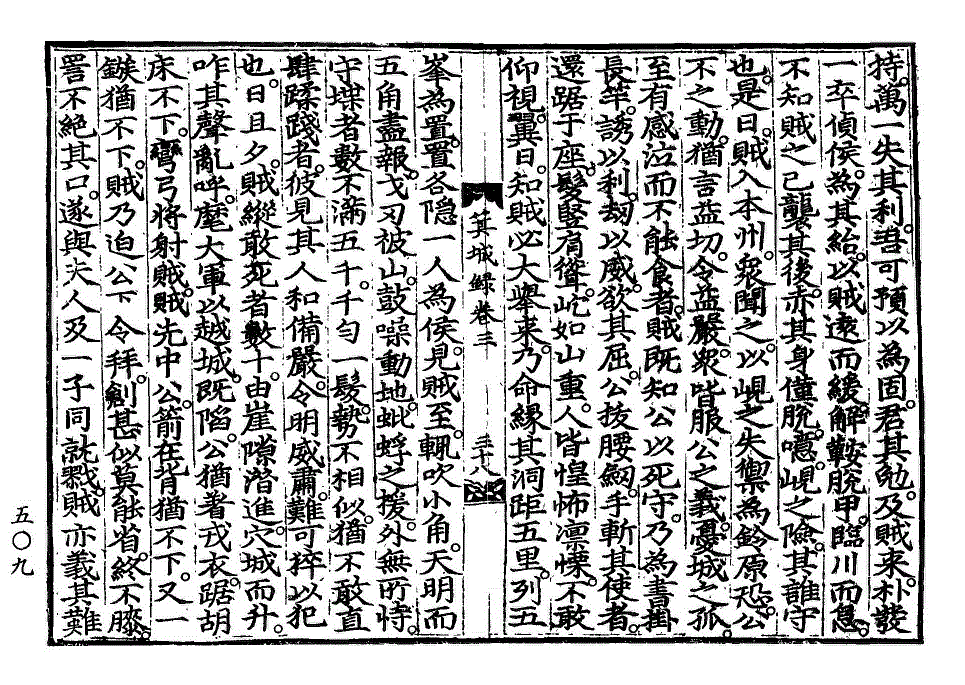 持。萬一失其利。詎可預以為固。君其勉。及賊來。朴發
一卒偵候。為其紿。以賊遠而緩。解鞍脫甲。臨川而息。
不知賊之已襲其後。亦其身僅脫。噫。峴之險。其誰守
也。是日。賊入本州。衆聞之。以峴之失禦為鈴原恐。公
不之動。猶言益切。令益嚴。衆皆服公之義。憂城之孤。
至有感泣而不能食者。賊既知公以死守。乃為書掛
長竿。誘以利。刼以威。欲其屈。公拔腰劒。手斬其使者。
還踞于座。髮豎肩聳。屹如山重。人皆惶怖凛慄。不敢
仰視。翼日。知賊必大舉來。乃命緣其洞距五里。列五
箕城録卷三
三十八
峯為置。置各隱一人為侯。見賊至。輒吹小角。天明而
五角盡報。戈刃被山。鼓噪動地。蚍蜉之援。外無所恃。
守堞者數不滿五千。千匀一髮。勢不相似。猶不敢直
肆蹂踐者。彼見其人和備嚴。令明威肅。難可猝以犯
也。日且夕。賊縱敢死者數十。由崖隙潛進。穴城而升。
咋其聲亂呼。麾大軍以越。城既陷。公猶著戎衣。踞胡
床不下。彎弓將射賊。賊先中公。箭在背猶不下。又一
鏃猶不下。賊乃迫公下。令拜。劍甚似莫能省。終不膝。
詈不絕其口。遂與夫人及一子同就戮。賊亦義其難
五〇九